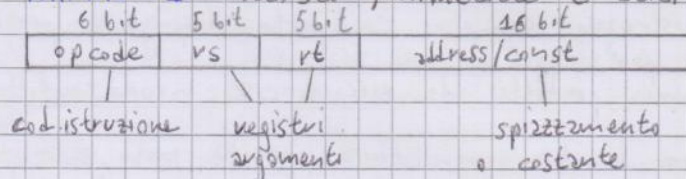 6 bit 5 bit 5 bit 16 bit
opcode rs rt address/const
cod. istruzione registri spiazzamento
argomenti o costante